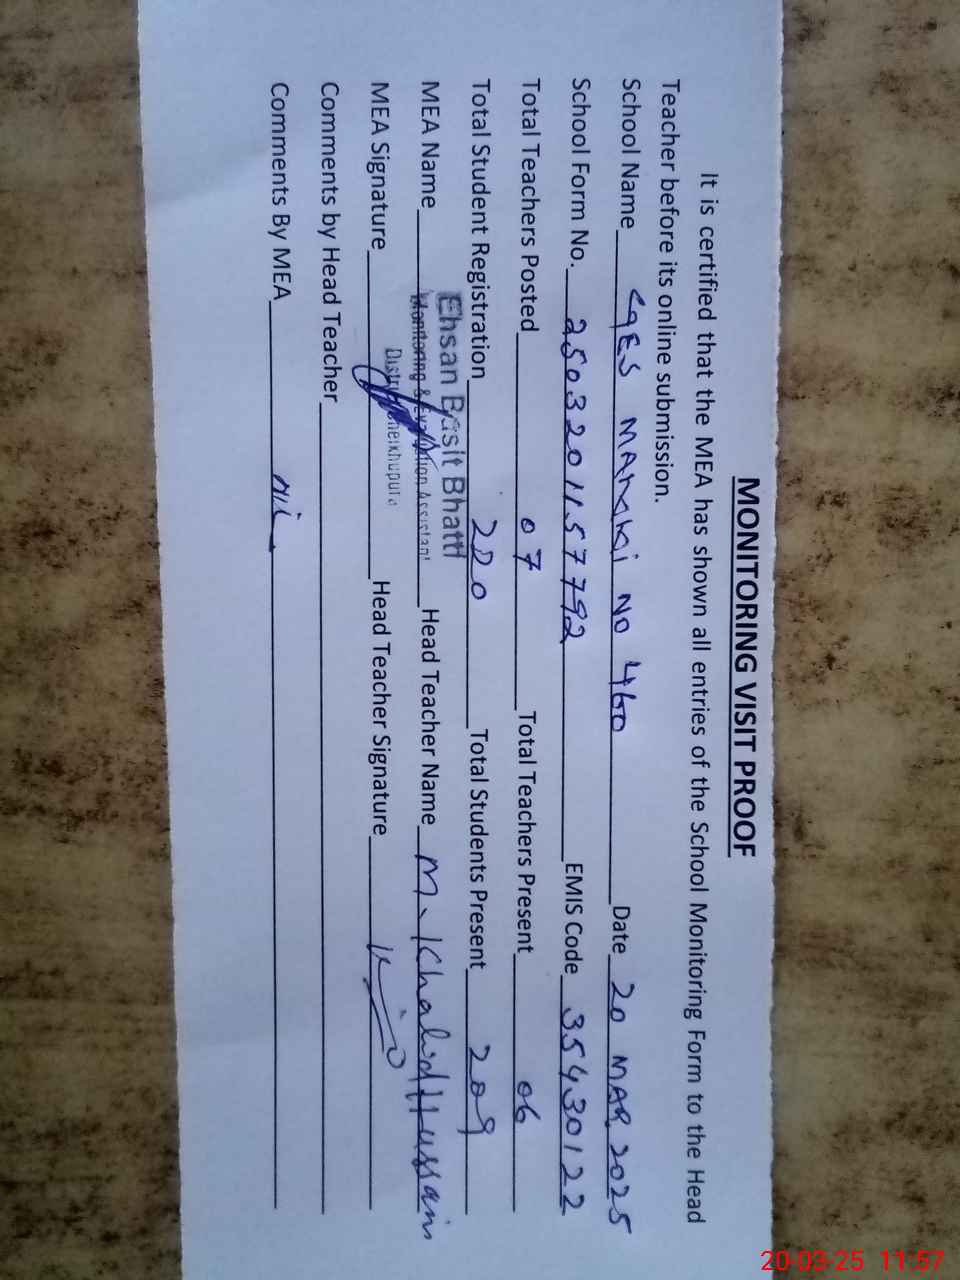 MONITORING VISIT PROOF
It is certified that the MEA has shown all entries of the School Monitoring Form to the Head
Teacher before its online submission.
School Name GES MANKI NO 460 Date 20 MAR 2025
School Form No. 2503201157792 EMIS Code 35430122
Total Teachers Posted 07 Total Teachers Present 06
Total Student Registration 220 Total Students Present 209
MEA Name Ehsan Basit Bhatti Head Teacher Name M. Khalid Hussain
Monitoring & Evaluation Assistant
District Sheikhupura
MEA Signature Head Teacher Signature
Comments by Head Teacher
Comments By MEA Nil
20-03-25 11:57